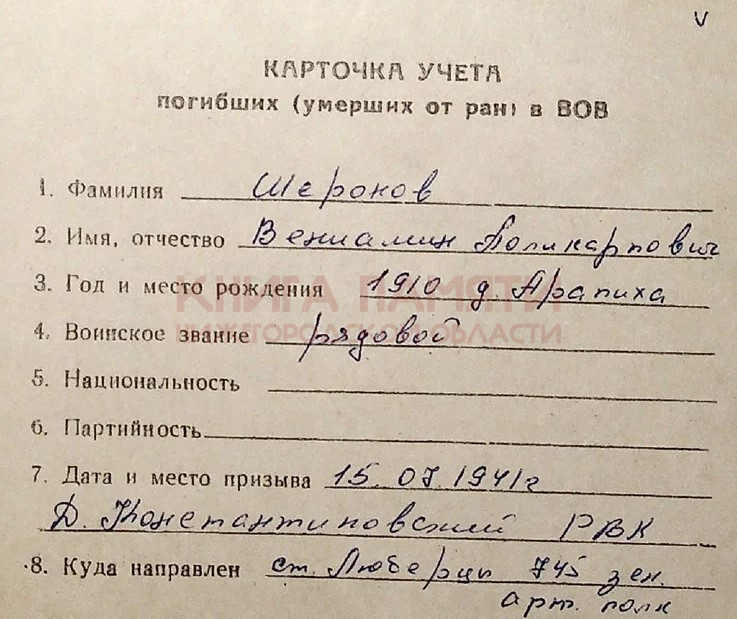 v
КАРТОЧКА УЧЕТА
погибших (умерших от ран) в ВОВ
1. Фамилия Шеронов
2. Имя, отчество Вениамин Поликарпович
3. Год и место рождения 1910 д. Арапиха
КНИГА ПАМЯТИ
4. Воинское звание рядовой
НИЖЕГОРОДСКОЙ ОБЛАСТИ
5. Национальность
6. Партийность
7. Дата и место призыва 15.07.1941г
Д. Константиновский РВК
8. Куда направлен ст. Люберцы 745 зен.
арт. полк